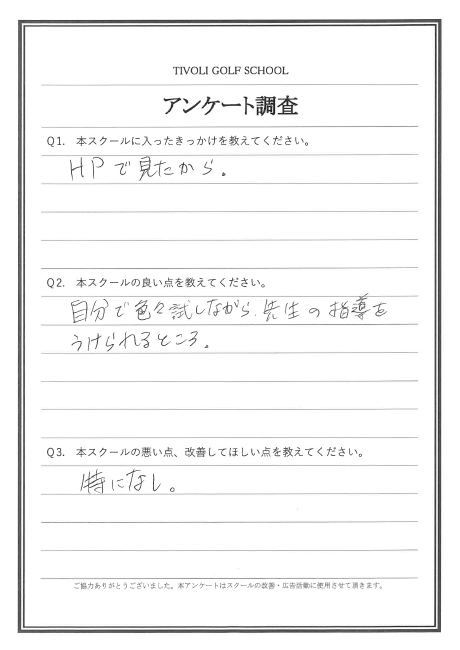 TIVOLI GOLF SCHOOL
アンケート調査
Q1. 本スクールに入ったきっかけを教えてください。
HPで見たから。
Q2. 本スクールの良い点を教えてください。
自分で色々試しながら、先生の指導を
うけられるところ。
Q3. 本スクールの悪い点、改善してほしい点を教えてください。
特になし。
ご協力ありがとうございました。本アンケートはスクールの改善・広告活動に使用させて頂きます。